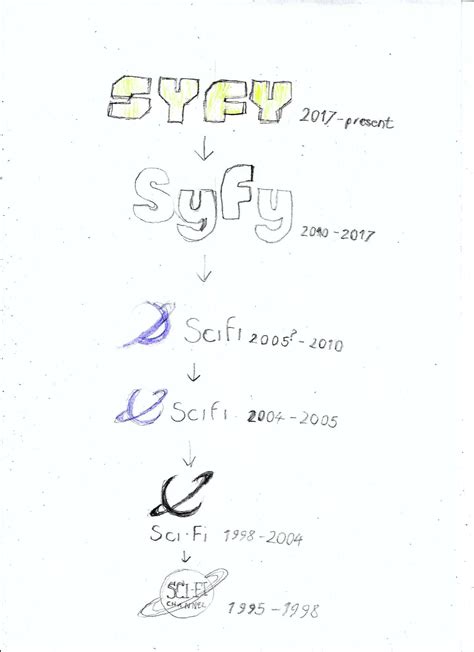 SYFY 2017-present
Syfy 2010-2017
SciFi 2005?-2010
SciFi 2004-2005
Sci-Fi 1998-2004
SCI-FI
CHANNEL 1995-1998